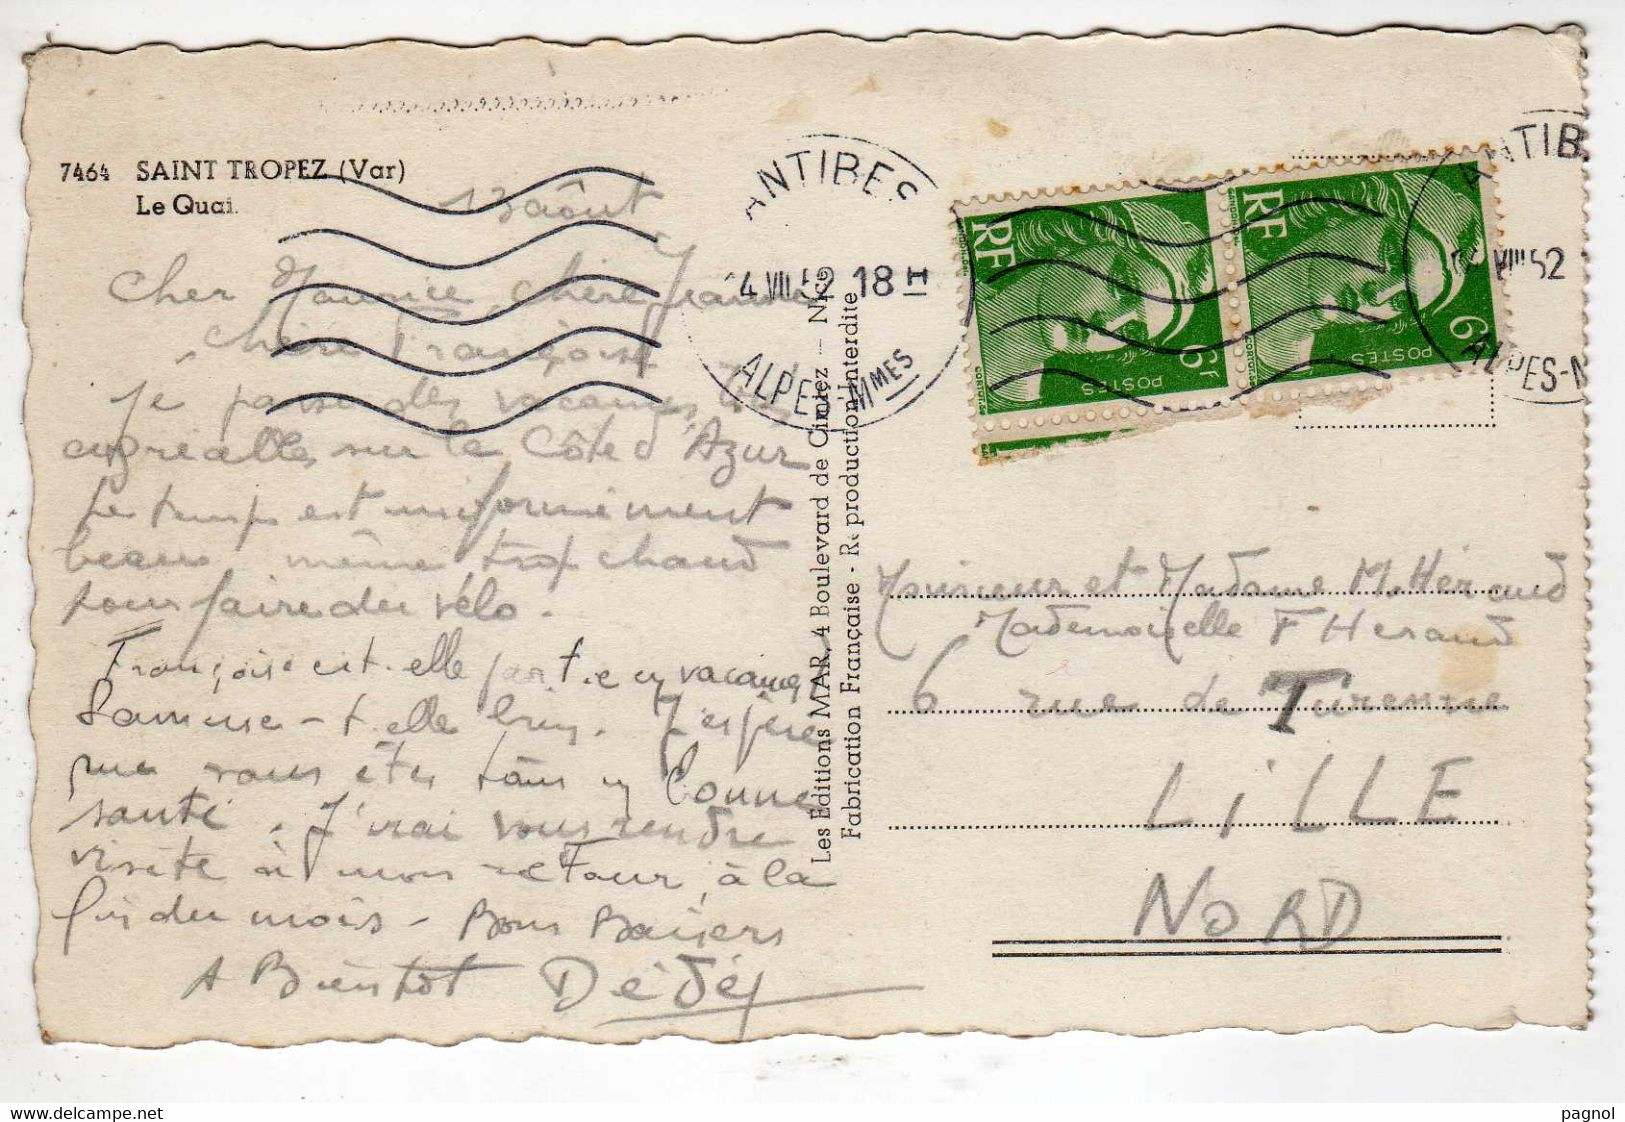 7464 SAINT TROPEZ (Var)
Le Quai.
13 août
Cher Maurice, chère Jeanne
chère Françoise
Je passe des vacances très
agréables sur la Côte d'Azur
Le temps est uniformément
beau même trop chaud
pour faire du vélo.
Françoise est-elle partie en vacances
s'amuse-t-elle bien. J'espère
que vous êtes tous en bonne
santé. J'irai vous rendre
visite à mon retour, à la
fin du mois - Bons Baisers
A Bientôt Dédé
Les Editions MAR, 4 Boulevard de Cimiez - Nice
Fabrication Française - Reproduction Interdite
ANTIBES
4 VIII 52 18 H
ALPES-MMES
RF
POSTES
6F
RF
POSTES
6
ANTIB
VIII 52
ALPES-M
Monsieur et Madame M. Héraud
Mademoiselle F Heraud
6 rue de Turenne
LiLLE
NORD
delcampe.net
pagnol